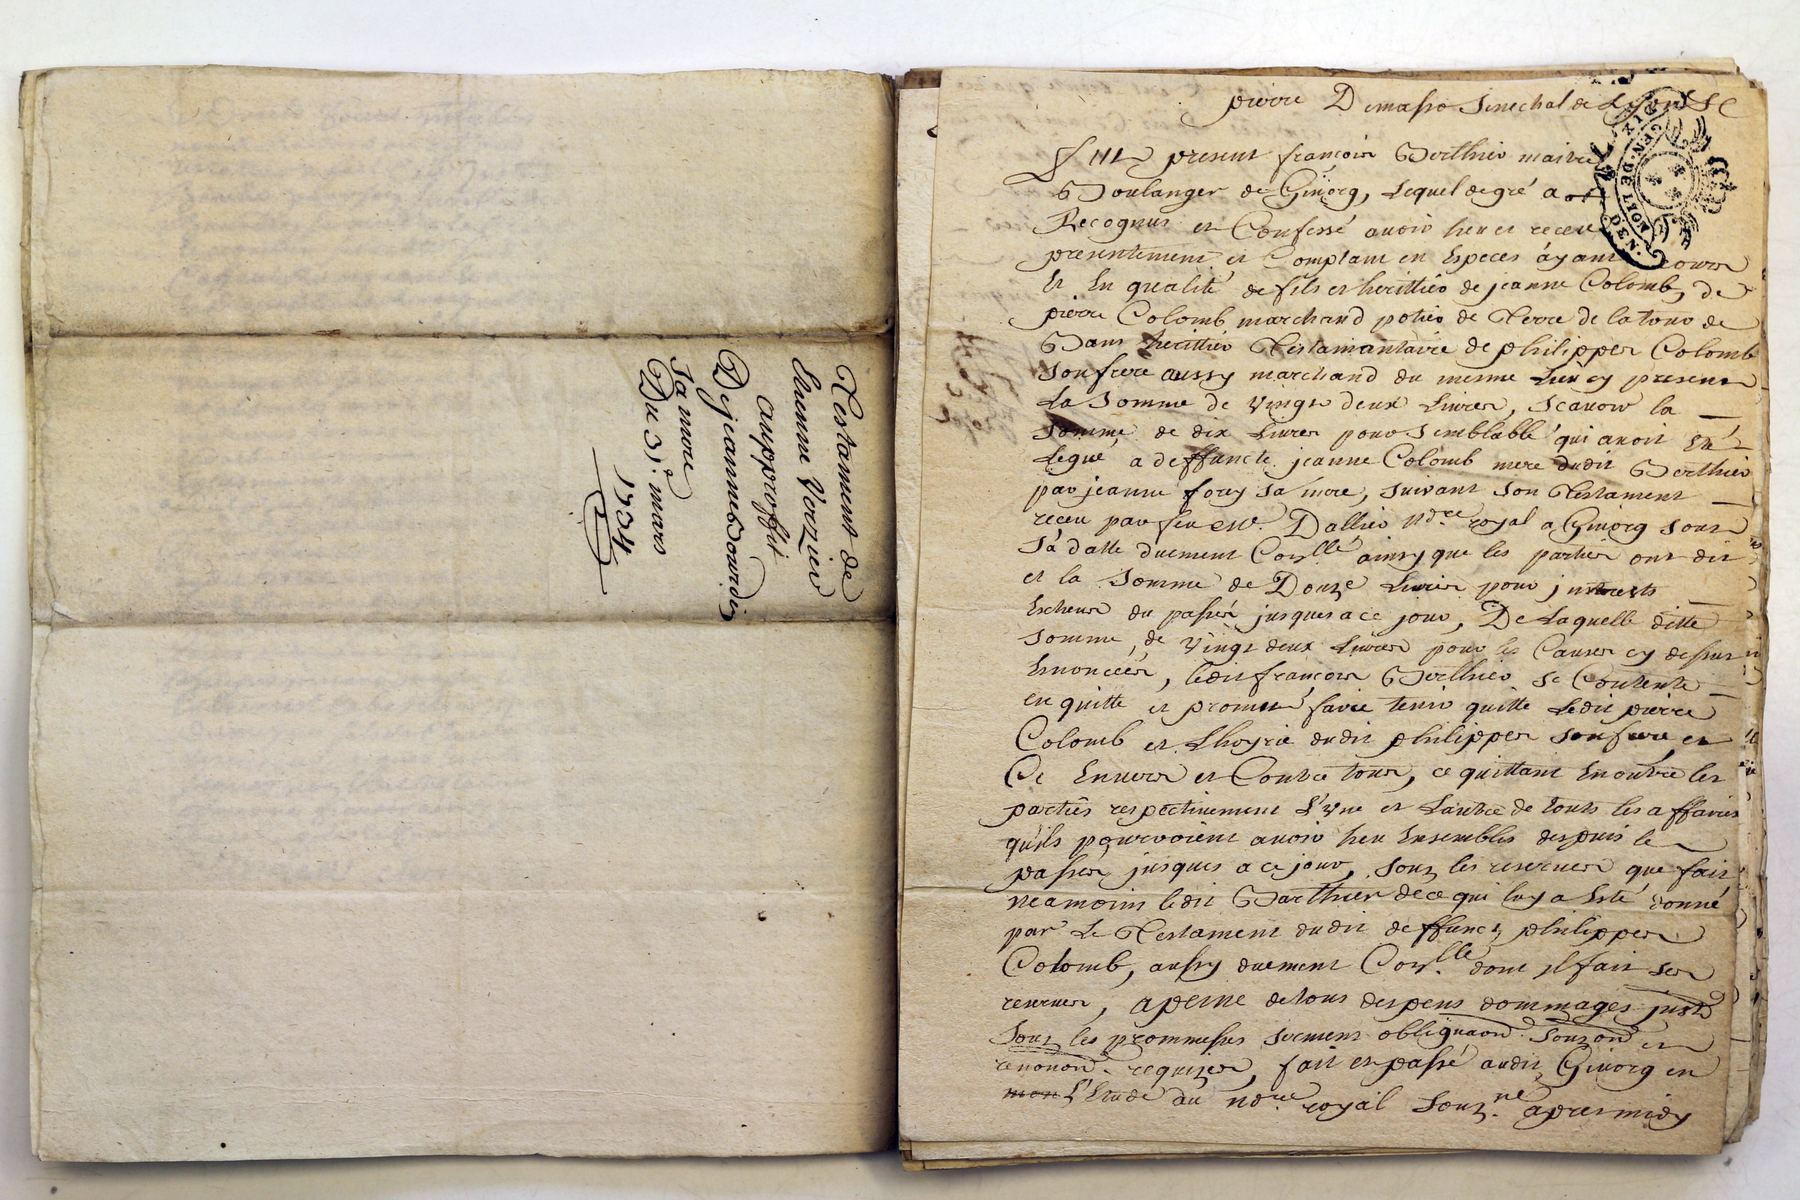 Testament de
Etienne Verzier
aupproffit
De jeanne Bourdin
Sa mere
Du 31e. mars
1734
pierre Demasso Senechal de Lyon
GEN. DE LION
DIX
Fut present françois Berthier maitre
Boulanger de Givorg, Lequel de gré a
Recognus et Confessé avoir heu et receu
presentement et Comptant en Especes áyant cours
Et En qualité de fils et herittier de jeanne Colomb, de
pierre Colomb marchand potier de Terre de la tour de
herittier Testamantaire de philipper Colomb
Son frere aussy marchand du mesme Lieu cy present
La Somme de vingt deux Livres, Scavoir la
Somme de dix Livres pour Semblable qui avoit Eté
Legué a deffuncte jeanne Colomb mere dudit Berthier
par jeanne forey Sa mere, suivant Son Testament
receu par feu Me. Dallier ndre royal a Givorg Sous
Sa datte duement Conllé ainsy que les parties ont dit
et la Somme de Douze Livres pour jntherests
Escheus du passé jusques a ce jour, De Laquelle ditte
Somme, de vingt deux Livres pour les Causes cy dessus
Enoncées, ledit françois Berthier Se Contente
en quitte et promet faire tenir quitte Ledit pierre
Colomb et Lhoyrie dudit philipper Son frere, et
Ce Envers et Contre tous, ce quittant En outre les
parties respectivement L'vne et Lautre de touts les affaires
qu'ils pourroient avoir heu Ensembles despuis le
passer jusques a ce jour, Sous les reserves que fait
neamoins ledit Barthier de ce qui luy a Esté donné
par Le Testament dudit deffunct philipper
Colomb, aussy duement Conllé dont jl fait Ses
reserves, a peine de tous despens dommages jnsts
Sous les prommesses serment obliguaon Souzon et
renonon. requises, fait et passé audit Givorg en
mon L'Etude du ndre royal Souz.né apresmidy